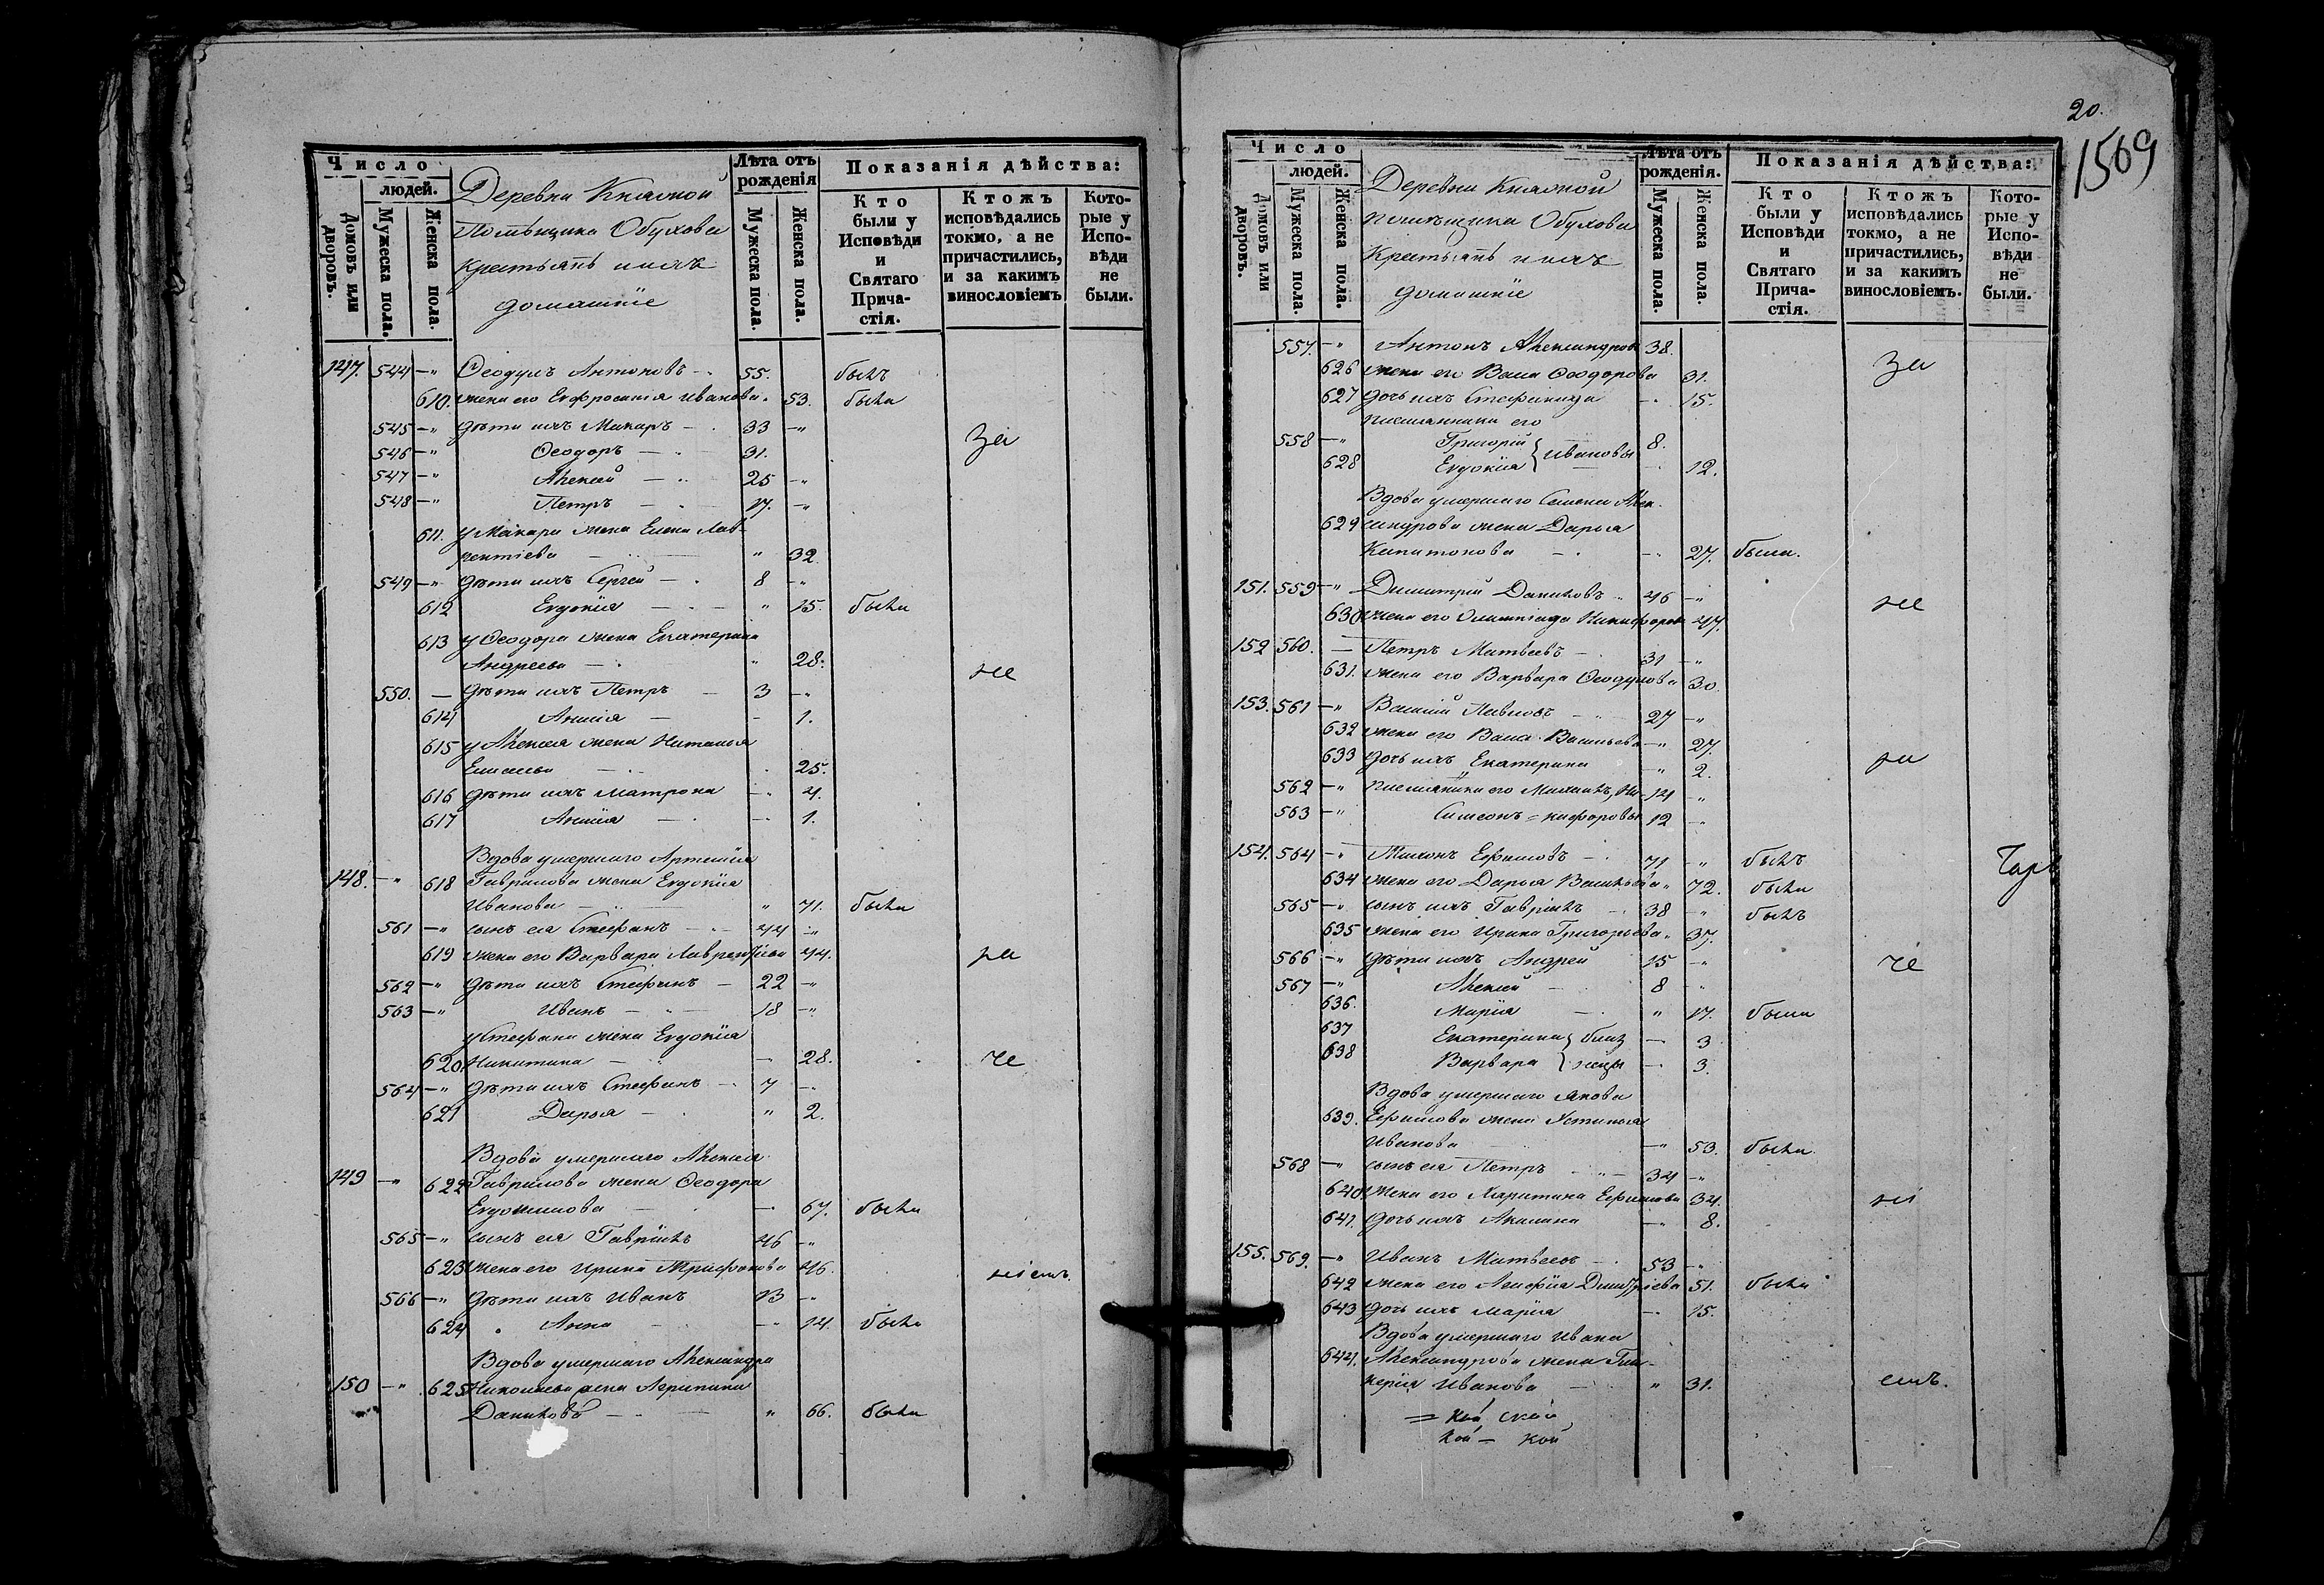 Число
людей.
Домовъ или дворовъ.
Мужеска пола.
Женска пола.
Деревни Княжой
Помѣщика Обухова
Крестьянѣ и ихъ
домашніе
Лѣта отъ рожденія
Мужеска пола.
Женска пола.
Показанія дѣйства:
Кто были у Исповѣди и Святаго Причастія.
Ктожъ исповѣдались токмо, а не причастились, и за какимъ винословіемъ
Которые у Исповѣди не были.
147. 544 –" Ѳеодулъ Антоновъ 55. былъ
610. жена его Евфросинія Иванова 53. была
545 –" дѣти ихъ Макаръ 33 –"
за
546 –" Ѳеодоръ 31.
547 –" Алексѣй 25 –"
548 –" Петръ 17. –"
611. у Макара жена Елена Лав-
рентіева " 32.
549 –" дѣти ихъ Сергей 8 –"
612 Евдокія " 15. была
613 у Ѳеодора жена Екатерина
Андреева " 28.
не
550. – дѣти ихъ Петръ 3 –"
614 Анисія – 1.
615 у Алексея жена Наталья
25.
616 дѣти ихъ Матрона 4.
617 Анисія 1.
Вдова умершаго Артемія
148. –" 618 Гаврилова жена Евдокія
Иванова " 71. была
561 –" сынъ ея Стефанъ 44 –"
619 жена его Варвара Лаврентьева 44.
ра
562 –" дѣти ихъ Стефанъ 22 –"
563 –" Иванъ 18 –"
у Стефана жена Евдокія
620 Никитина 28.
че
564 –" дѣти ихъ Стефанъ 7 –"
621 Дарья " 2.
Вдова умершаго Алексея
149 –" 622 Гаврилова жена Ѳеодора
Евдокимова 67. была
565 –" сынъ ея Гавріилъ 46 –"
623 жена его Ирина Трифонова 46.
ніемъ
566 –" дѣти ихъ Иванъ 13 –"
624 Анна 14. была
Вдова умершаго Александра
150 –" 625 Николаева жена Агрипина
Данилова " 66. была
20.
1569
Число
людей.
Домовъ или дворовъ.
Мужеска пола.
Женска пола.
Деревни Княжой
помѣщика Обухова
Крестьянѣ и ихъ
домашніе
Лѣта отъ рожденія.
Мужеска пола.
Женска пола.
Показанія дѣйства:
Кто были у Исповѣди и Святаго Причастія.
Ктожъ исповѣдались токмо, а не причастились, и за какимъ винословіемъ.
Которые у Исповѣди не были.
557. –" Антонъ Александровъ 38.
за
626 жена его Васса Ѳеодорова 31.
627 дочь ихъ Стефанида 15.
племянники его
558 –" Григорій 8.
Ивановы
628 Евдокія 12.
Вдова умершаго Семена Алек-
629 сандрова жена Дарья
Капитонова 27. была.
151. 559 –" Димитрій Даниловъ 46 –"
не
630 жена его Олимпіада Никифорова 47.
152 560. – Петръ Матвеевъ 31 –"
631. жена его Варвара Ѳеодулова 30.
153. 561 –" Василій Павловъ 27 –"
632 жена его Васса Васильева –" 27.
633 дочь ихъ Екатерина " 2.
ра
562 –" племянники его Михаилъ, Ни- 14 –"
563 –" Симеонъ = кифоровы 12 –"
154. 564 –" Ефимовъ 71 –" былъ
Чаръ
634 жена его Дарья Васильева 72. была
565 –" сынъ ихъ Гавріилъ 38 –" былъ
635 жена его Ирина Григорьева 37.
566 –" дѣти ихъ Андрей 15 –"
че
567 –" Алексѣй 8 –"
636. Марія " 17. была
637 Екатерина близ 3
638 Варвара нецы 3.
Вдова умершаго Якова
639. Ефимова жена Устинья
Иванова –" 53. была.
568 –" сынъ ея Петръ 34 –"
640 жена его Харитина Ефимова 34.
ні
641. дочь ихъ Акилина 8.
155. 569. –" Иванъ Матвеевъ 53 –"
642 жена его Агафія Димитріева 51. была
643 дочь ихъ Марія 15.
Вдова умершаго Ивана
644. Александрова жена Гли-
керія Иванова " 31.
емъ.
= кой ской
кой – кой